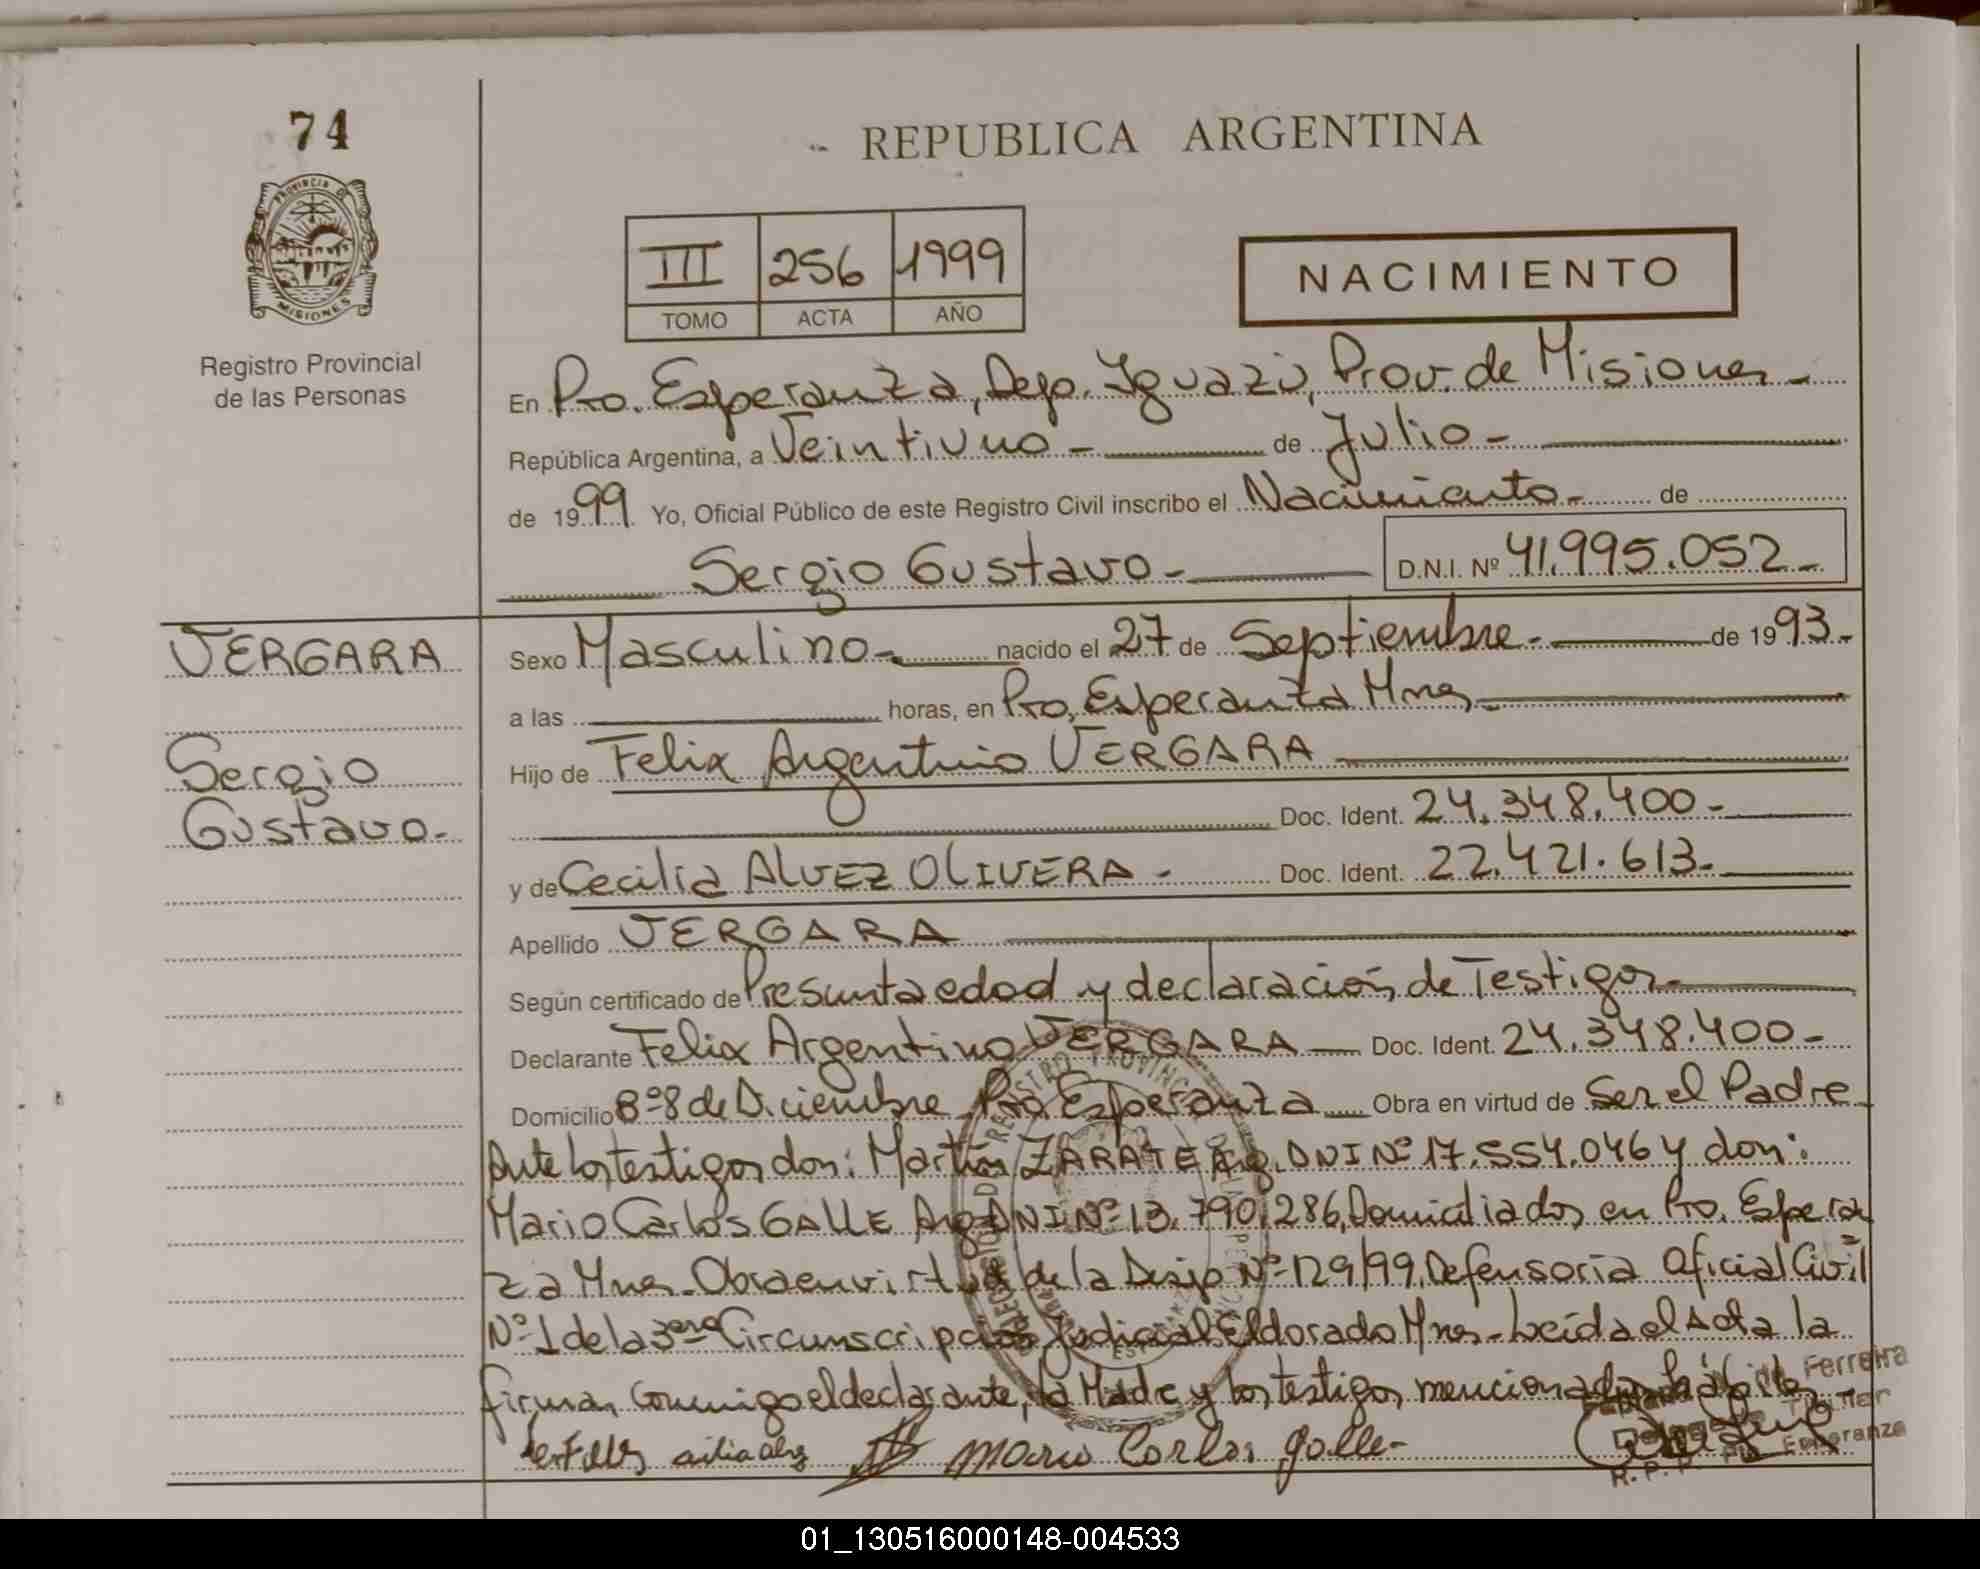 74
REPUBLICA ARGENTINA
PROVINCIA DE
MISIONES
III 256 1999
TOMO ACTA AÑO
NACIMIENTO
Registro Provincial
de las Personas
En Pto. Esperanza, Depo. Iguazú, Prov. de Misiones -
República Argentina, a Veintiuno - de Julio -
de 1999 Yo, Oficial Público de este Registro Civil inscribo el Nacimiento - de
Sergio Gustavo - D.N.I. Nº 41.995.052 -
VERGARA
Sergio
Gustavo -
Sexo Masculino - nacido el 27 de Septiembre - de 1993 -
a las horas, en Pto. Esperanza Mnes
Hijo de Felix Argentino VERGARA
Doc. Ident. 24.348.400 -
y de Cecilia ALVEZ OLIVERA - Doc. Ident. 22.421.613 -
Apellido VERGARA
Según certificado de Presunta edad y declaración de Testigos -
Declarante Felix Argentino VERGARA Doc. Ident. 24.348.400 -
Domicilio Bº 8 de Diciembre Pto. Esperanza Obra en virtud de Ser el Padre
Ante los testigos don: Martín ZARATE Arg. DNI Nº 17.554.046 y don:
Mario Carlos GALLE Arg. DNI Nº 13.790.286, Domiciliados en Pto. Esperan
za Mnes - Obra en virtud de la Nº 129/99, Defensoria Oficial Civil
Nº 1 de la 3era Circunscripción Judicial Eldorado Mnes - Leída el Acta la
firman Conmigo el declarante, la Madre y los testigos mencionados
Mario Carlos Galle -
Ferreira
R.P.P. Pto. Esperanza
01_130516000148-004533